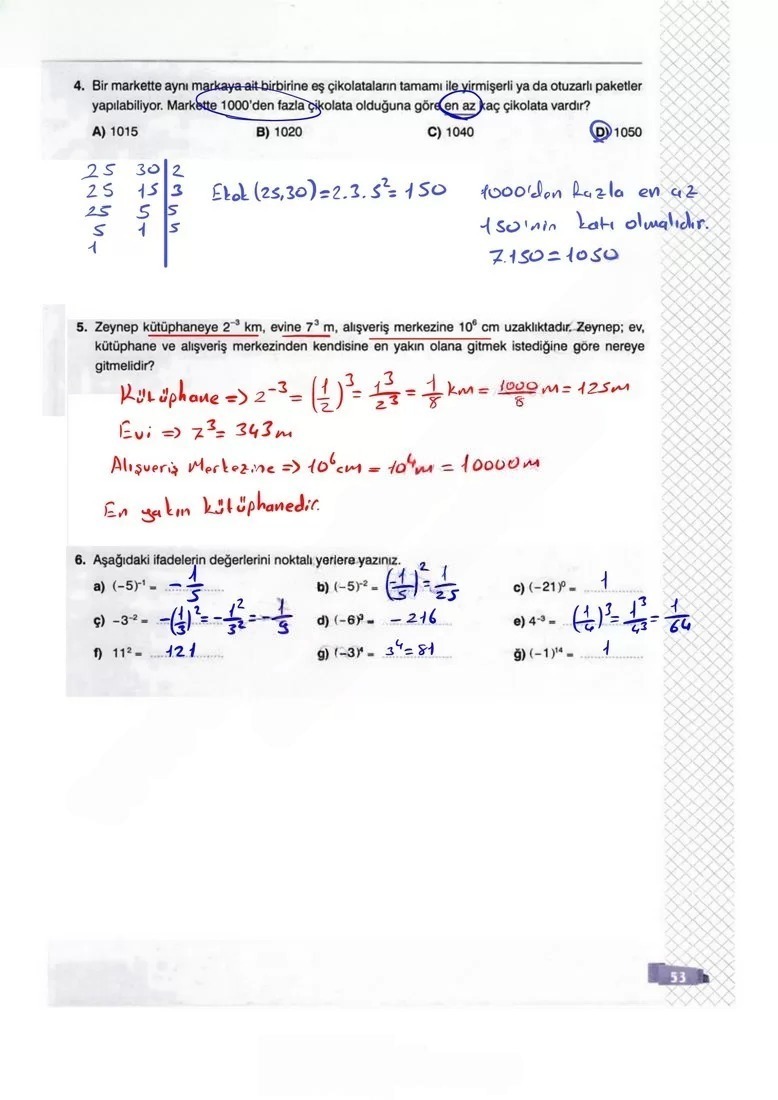 4. Bir markette aynı markaya ait birbirine eş çikolataların tamamı ile yirmişerli ya da otuzarlı paketler
yapılabiliyor. Markette 1000'den fazla çikolata olduğuna göre en az kaç çikolata vardır?
A) 1015 B) 1020 C) 1040 D) 1050
25 30 2
25 15 3
25 5 5
5 1 5
1
Ekok (25,30)=2.3.5²=150
1000'den fazla en az
150'nin katı olmalıdır.
7.150=1050
5. Zeynep kütüphaneye 2⁻³ km, evine 7³ m, alışveriş merkezine 10⁶ cm uzaklıktadır. Zeynep; ev,
kütüphane ve alışveriş merkezinden kendisine en yakın olana gitmek istediğine göre nereye
gitmelidir?
Kütüphane => 2⁻³ = (1/2)³ = 1³/2³ = 1/8 km = 1000/8 m = 125m
Evi => 7³= 343m
Alışveriş Merkezine => 10⁶cm = 10⁴m = 10000m
En yakın kütüphanedir.
6. Aşağıdaki ifadelerin değerlerini noktalı yerlere yazınız.
a) (−5)⁻¹ = -1/5 b) (−5)⁻² = (-1/5)² = 1/25 c) (−21)⁰ = 1
ç) −3⁻² = -(1/3)² = -1²/3² = -1/9 d) (−6)³ = -216 e) 4⁻³ = (1/4)³ = 1³/43 = 1/64
f) 11² = 121 g) (−3)⁴ = 3⁴=81 ğ) (−1)¹⁴ = 1
53